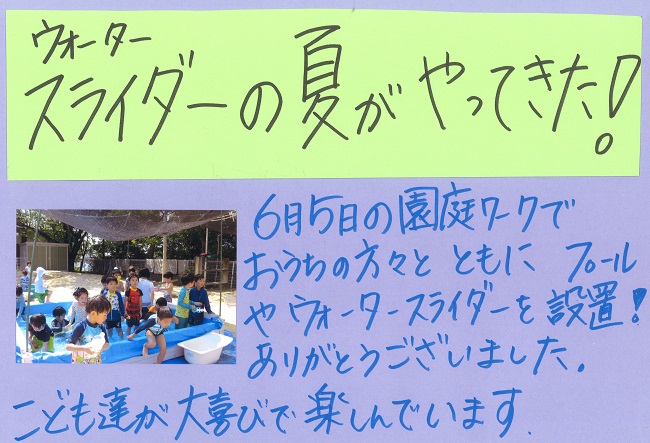 ウォーター
スライダーの夏がやってきた!
6月5日の園庭ワークで
おうちの方々と ともに プール
や ウォータースライダーを 設置!
ありがとうございました。
こども達が 大喜びで 楽しんでいます。